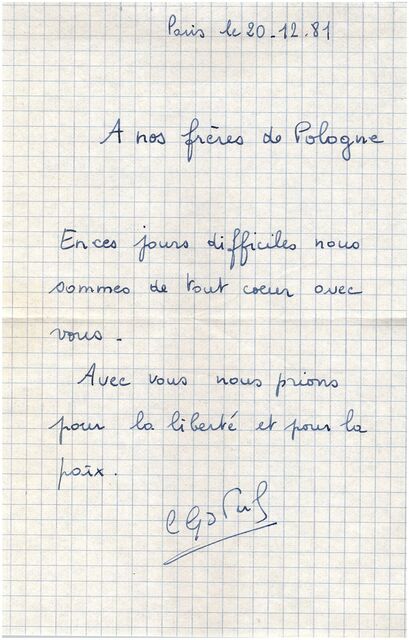 Paris le 20-12.81
A nos frères de Pologne
En ces jours difficiles nous
sommes de tout coeur avec
vous.
Avec vous nous prions
pour la liberté et pour la
paix.